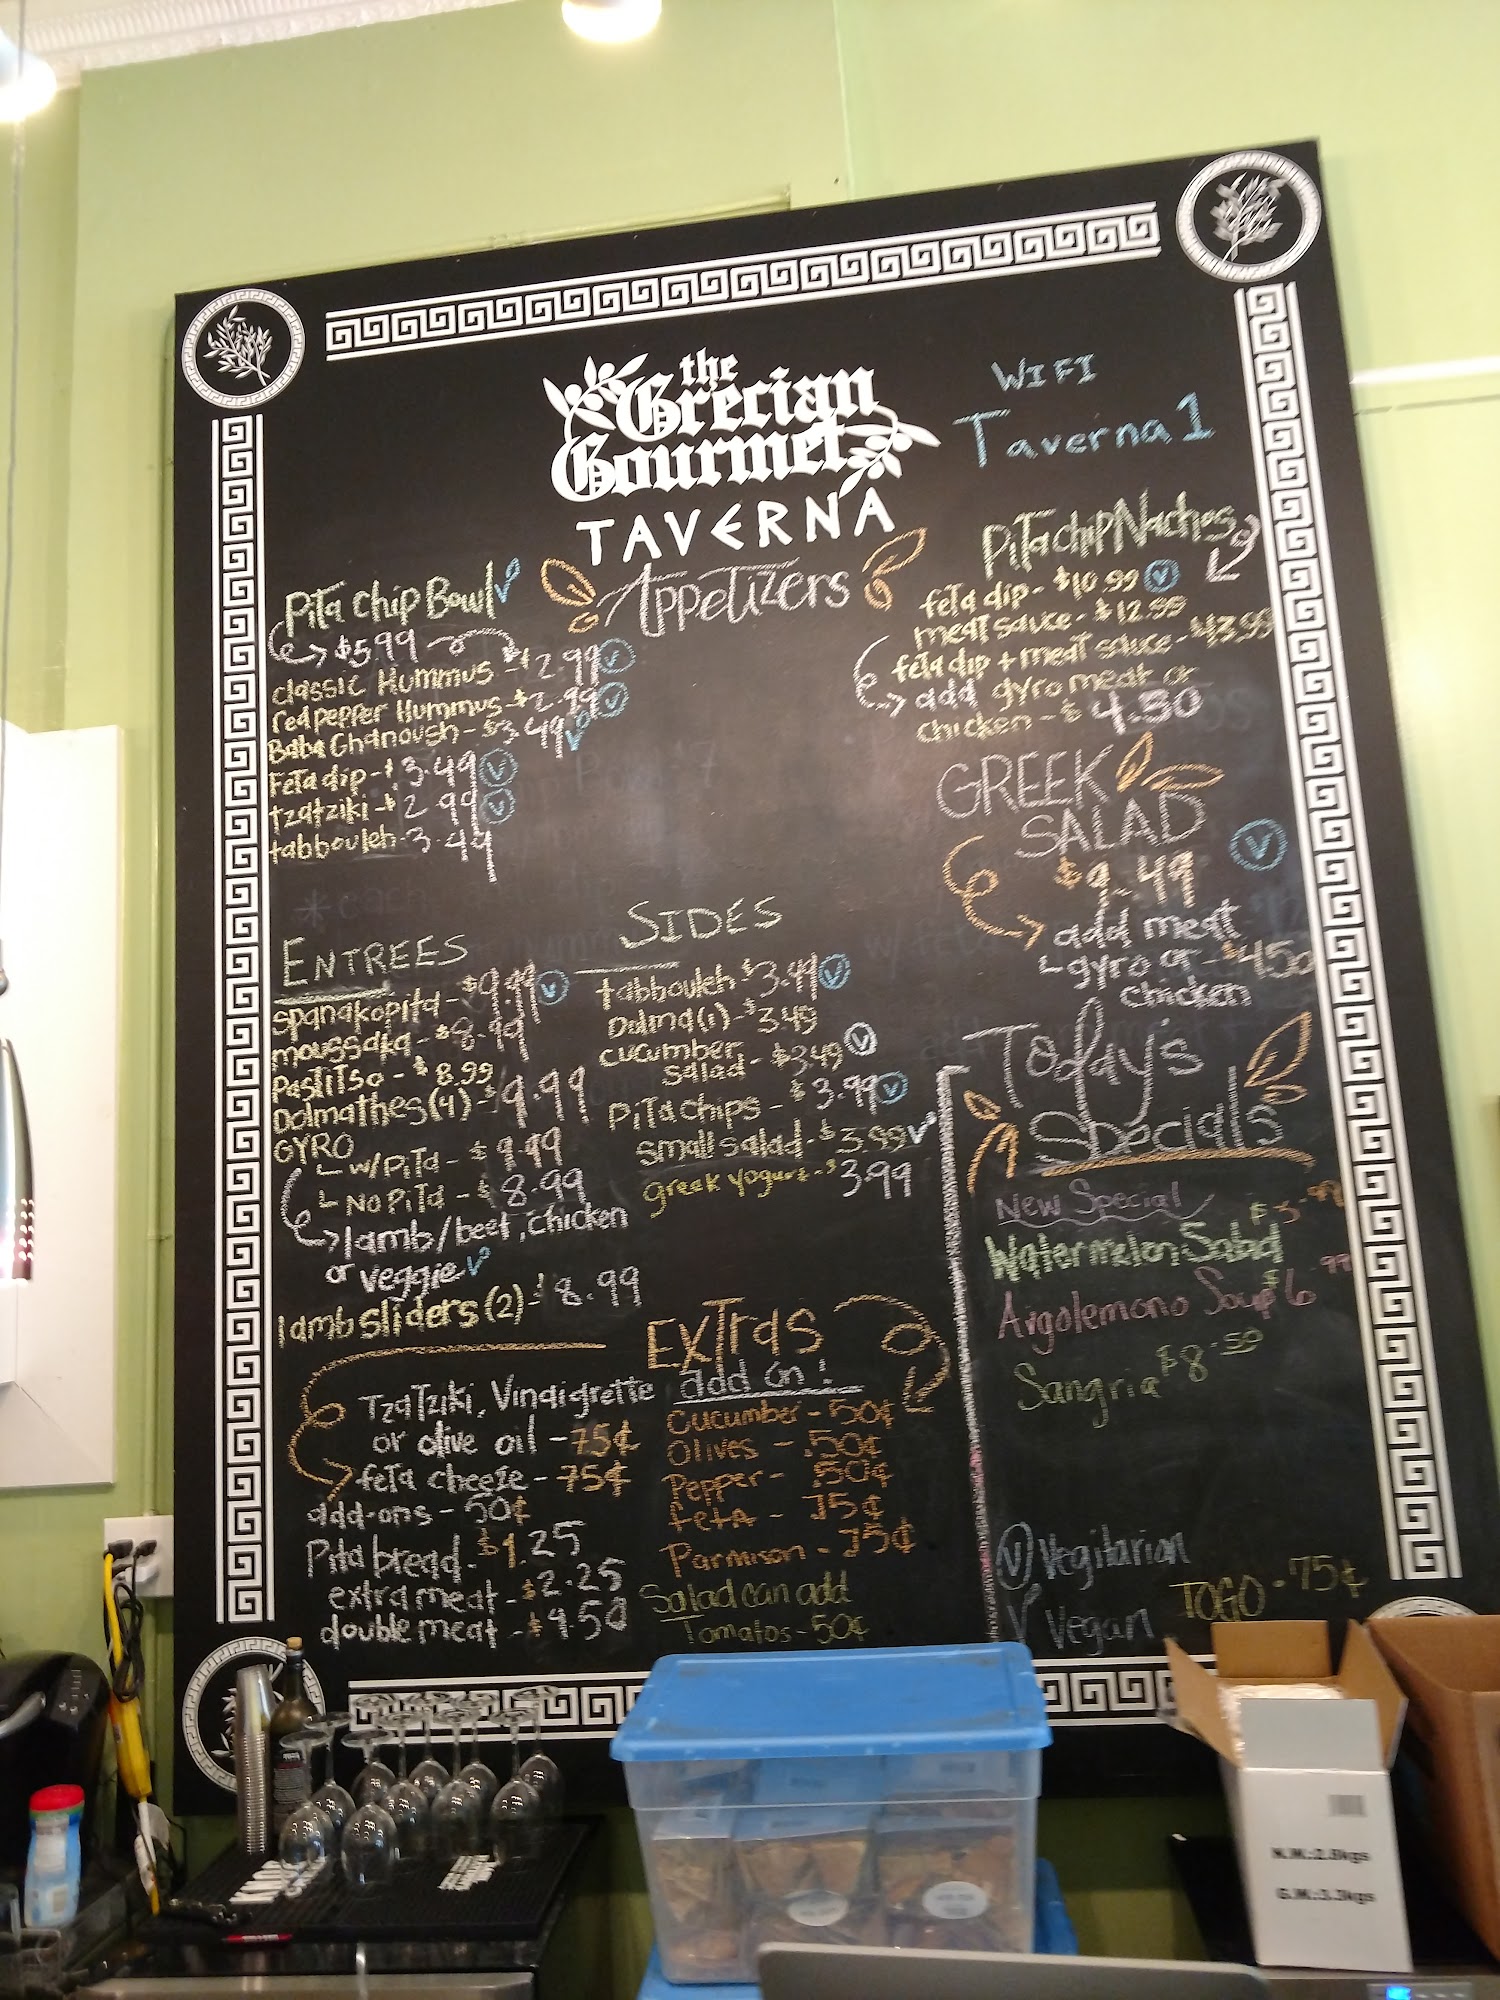 the
Grecian
Gourmet
TAVERNA
WIFI
Taverna1
Appetizers
Pita chip Bowl V
$5.99
classic Hummus - $2.99 V
red pepper Hummus - $2.99 V
Baba Ghanoush - $3.49 V
Feta dip - $3.49 V
tzatziki - $2.99 V
tabbouleh - 3.49
Pita chip Nachos
feta dip - $10.99 V
meat sauce - $12.99
feta dip + meat sauce - 13.99
add gyro meat or
chicken - $4.50
GREEK
SALAD
$9.49 V
add meat
gyro or - $4.50
chicken
ENTREES
spanakopita - $9.99 V
moussaka - $8.99
Pastitso - $8.99
Dolmathes (4) - $9.99
GYRO
w/pita - $9.99
No pita - $8.99
lamb/beef, chicken
or veggie V
lamb sliders (2) - $8.99
SIDES
tabbouleh - $3.49 V
Dolma (1) - $3.49
cucumber
salad - $3.49 V
pita chips - $3.99 V
small salad - $3.99 V
greek yogurt - $3.99
Tzatziki, Vinaigrette
or olive oil - 75¢
feta cheese - 75¢
add-ons - 50¢
Pita bread - $1.25
extra meat - $2.25
double meat - $4.50
Extras
add on!
Cucumber - 50¢
Olives - .50¢
Pepper - .50¢
fetA - .75¢
Parmison - .75¢
Salad can add
Tomatos - 50¢
Today's
Specials
New Special
Watermelon Salad $3.99
Avgolemono Soup $6.99
Sangria $8.50
V Vegitarian
V Vegan
TOGO - .75¢
N.W.:2.8kgs
G.W.:3.3kgs